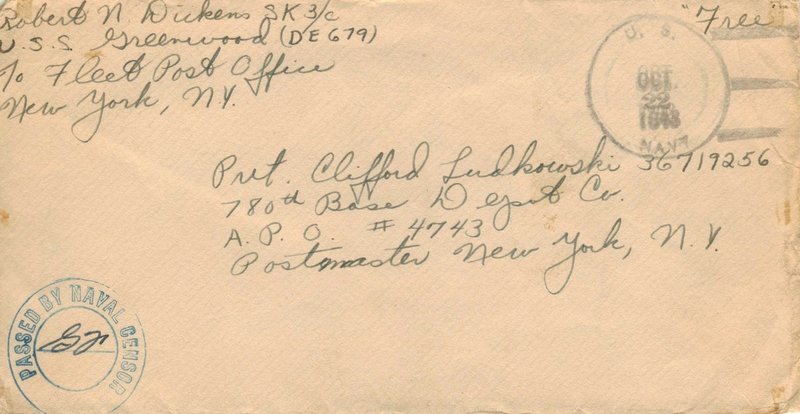 Robert N. Dickens SK 3/c
U.S.S. Greenwood (DE 679)
℅ Fleet Post Office
New York, N.Y.
"Free"
U. S.
OCT.
22
1943
NAVY
Pvt. Clifford Ludkowski 36719256
780th Base Depot Co.
A.P.O. # 4743
Postmaster New York, N.Y.
PASSED BY NAVAL CENSOR